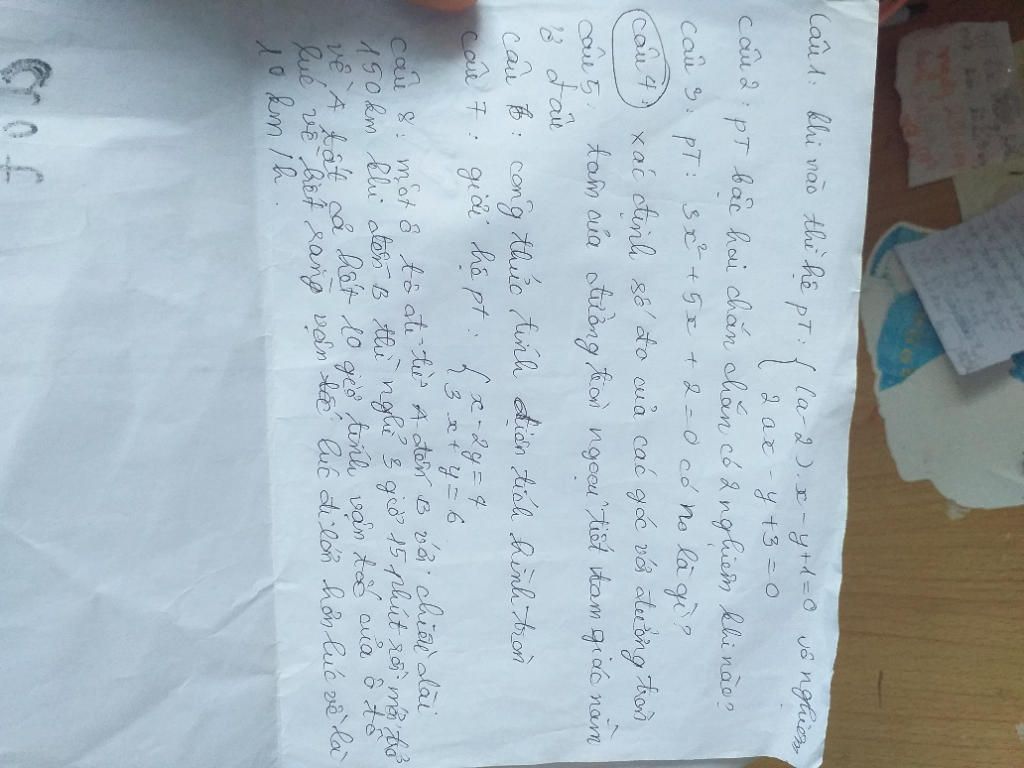 Câu 1: khi nào thì hệ pT: { (a-2)x - y+1=0 vô nghiệm
2ax - y + 3 = 0
câu 2: pT bậc hai chắn chắn có 2 nghiệm khi nào?
câu 3: pT: 3x² + 5x + 2 = 0 có no là gì?
câu 4: xác định số đo của các góc với đường tròn
câu 5: tâm của đường tròn ngoại tiết tam giác nằm
ở đâu
câu 6: công thức tính diện tích hình tròn
câu 7: giải hệ pT: { x - 2y = 4
3x + y = 6
câu 8: một ô tô đi từ A đến B với chiều dài
150 km khi đến B thì nghỉ 3 giờ 15 phút rồi mới trở
về A tất cả hết 10 giờ tính vận tốc của ô tô
lúc về biết rằng vận tốc lúc đi lớn hơn lúc về là
10 km/h.